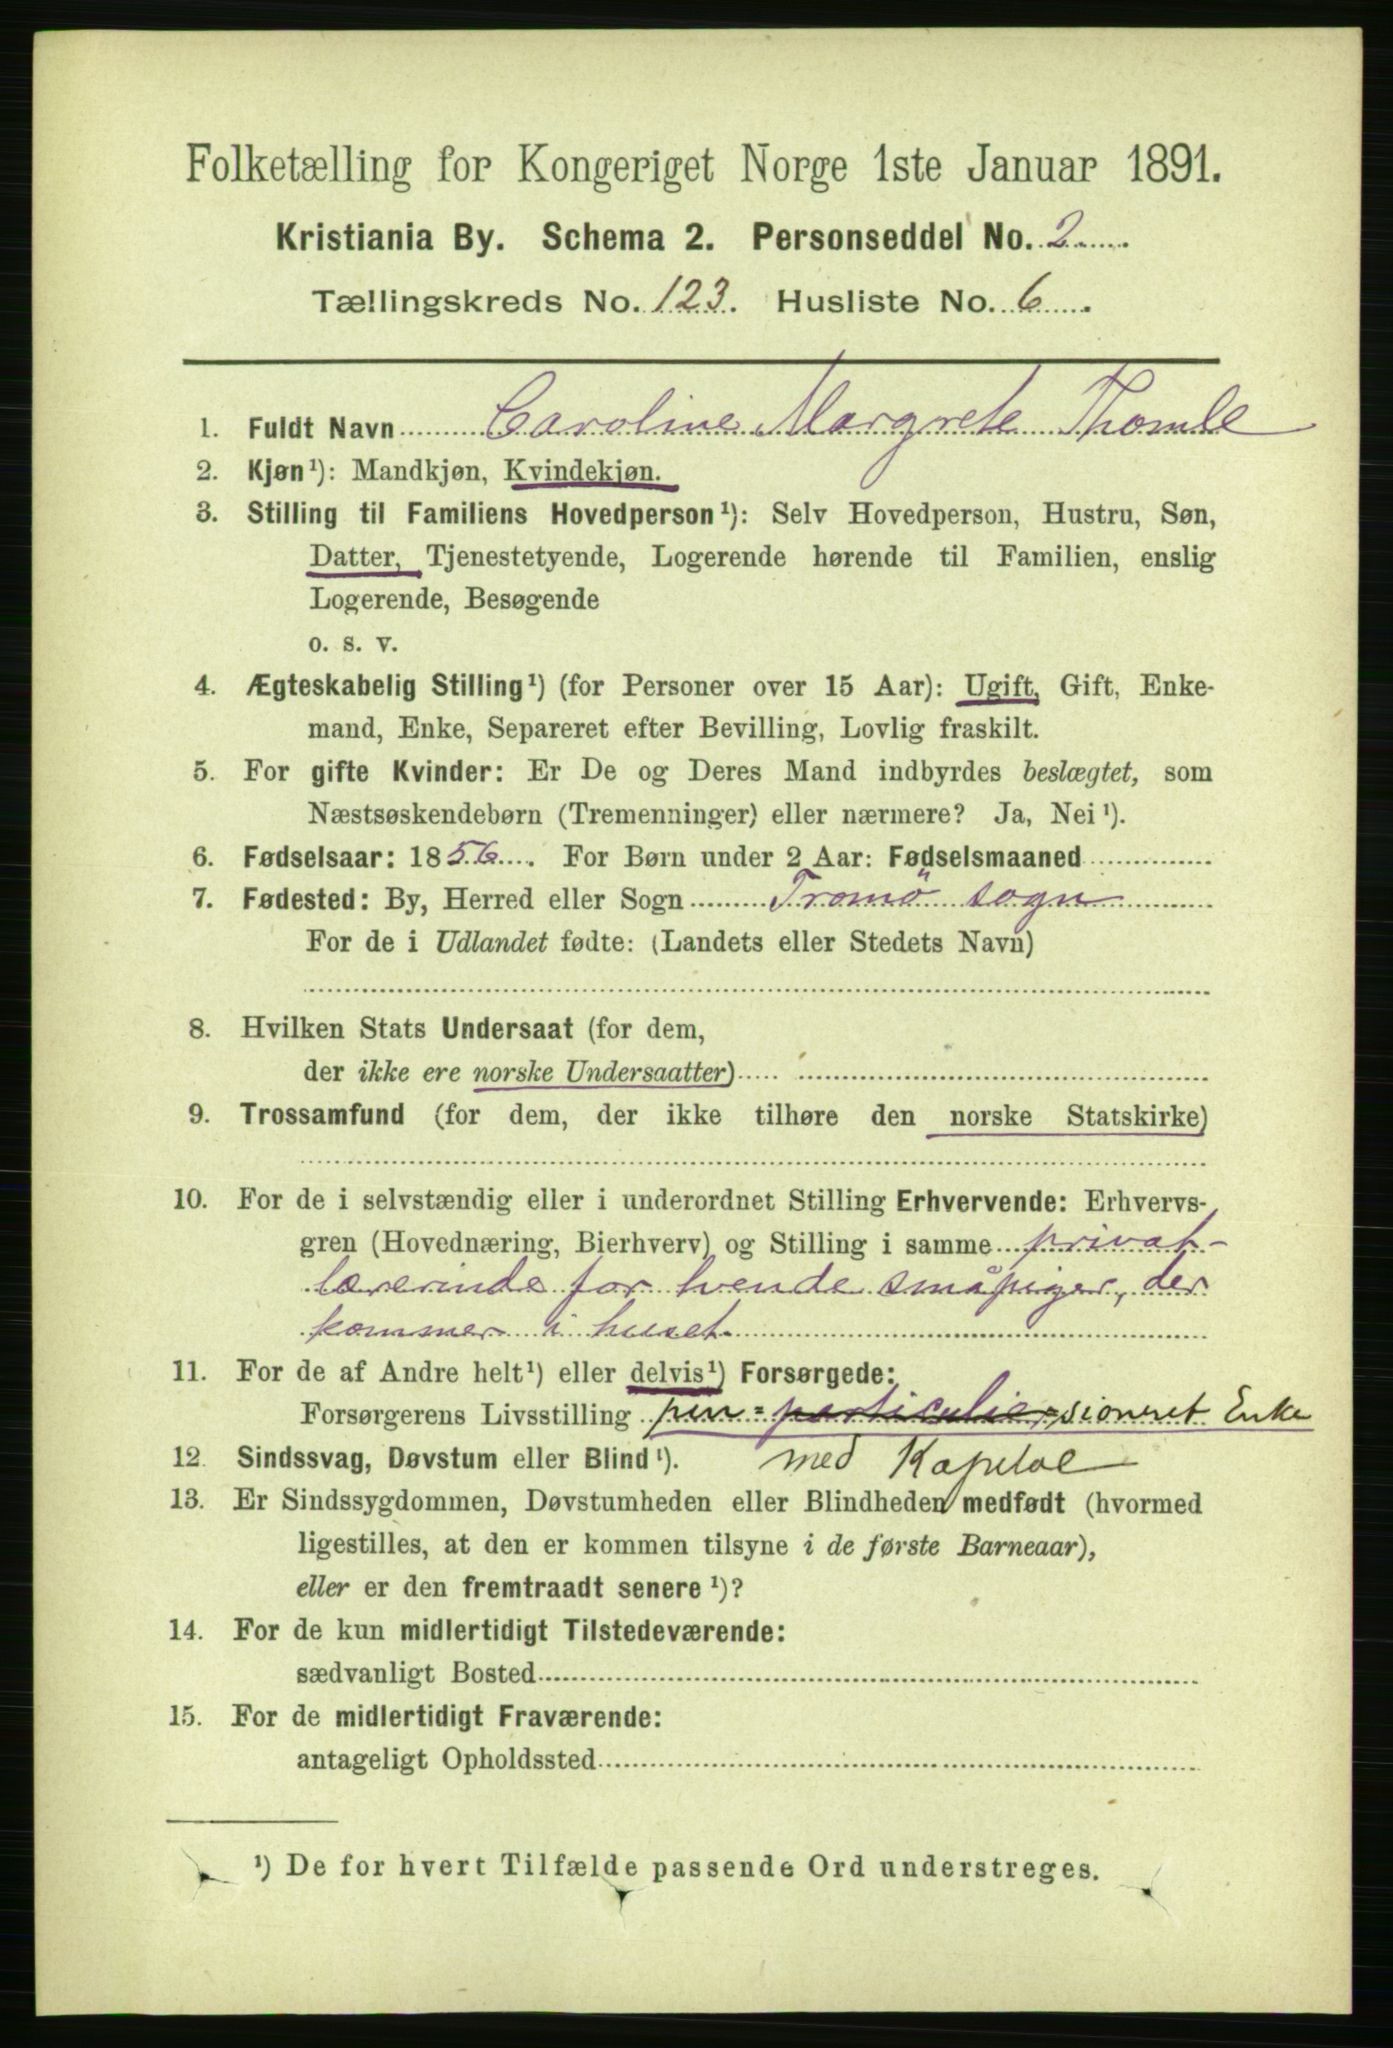 Folketælling for Kongeriget Norge 1ste Januar 1891.
Kristiania By. Schema 2. Personseddel No. 2
Tællingskreds No. 123. Husliste No. 6
1. Fuldt Navn Caroline Margrete Thomle
2. Kjøn¹): Mandkjøn, Kvindekjøn.
3. Stilling til Familiens Hovedperson¹): Selv Hovedperson, Hustru, Søn,
Datter, Tjenestetyende, Logerende hørende til Familien, enslig
Logerende, Besøgende
o. s. v.
4. Ægteskabelig Stilling¹) (for Personer over 15 Aar): Ugift, Gift, Enke-
mand, Enke, Separeret efter Bevilling, Lovlig fraskilt.
5. For gifte Kvinder: Er De og Deres Mand indbyrdes beslægtet, som
Næstsøskendebørn (Tremenninger) eller nærmere? Ja, Nei¹).
6. Fødselsaar: 1856. For Børn under 2 Aar: Fødselsmaaned
7. Fødested: By, Herred eller Sogn Tromö sogn
For de i Udlandet fødte: (Landets eller Stedets Navn)
8. Hvilken Stats Undersaat (for dem,
der ikke ere norske Undersaatter)
9. Trossamfund (for dem, der ikke tilhøre den norske Statskirke)
10. For de i selvstændig eller i underordnet Stilling Erhvervende: Erhvervs-
gren (Hovednæring, Bierhverv) og Stilling i samme privat-
lærerinde for hvende småpiger, der
kommer i huset.
11. For de af Andre helt¹) eller delvis¹) Forsørgede:
Forsørgerens Livsstilling pen= particulier sioneret Enke
12. Sindssvag, Døvstum eller Blind¹). med Kapital
13. Er Sindssygdommen, Døvstumheden eller Blindheden medfødt (hvormed
ligestilles, at den er kommen tilsyne i de første Barneaar),
eller er den fremtraadt senere¹)?
14. For de kun midlertidigt Tilstedeværende:
sædvanligt Bosted
15. For de midlertidigt Fraværende:
antageligt Opholdssted
¹) De for hvert Tilfælde passende Ord understreges.